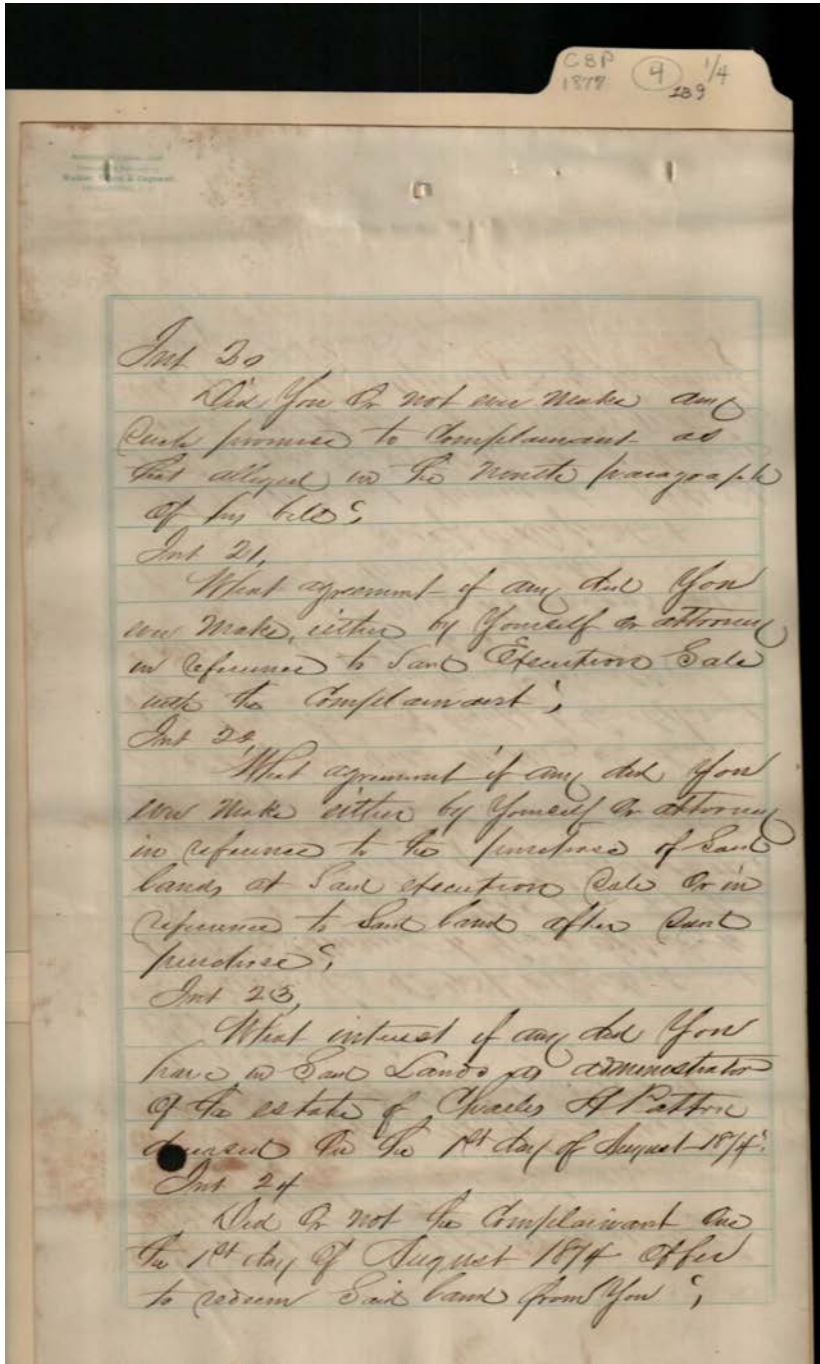 CBP
1877
4
1/4
139
Int 20
Did You Or not ever make any
Such promise to Complainant as
that alleged in the Nineth paragraph
Of his bill?
Int 21,
What agreement if any did You
ever Make, either by Yourself Or attorney
in reference to Said Execution Sale
with the Complainant?
Int 22,
What agreement if any did You
ever Make either by Yourself Or attorney
in reference to the purchase of Said
lands at Said execution Sale Or in
reference to Said land after Said
purchase?
Int 23,
What interest if any did You
have in Said Lands as administrator
Of the estate of Charles H Patton
deceased On the 1st day of August 1874?
Int 24
Did Or not the Complainant On
the 1st day Of August 1874 Offer
to redeem Said land from You?